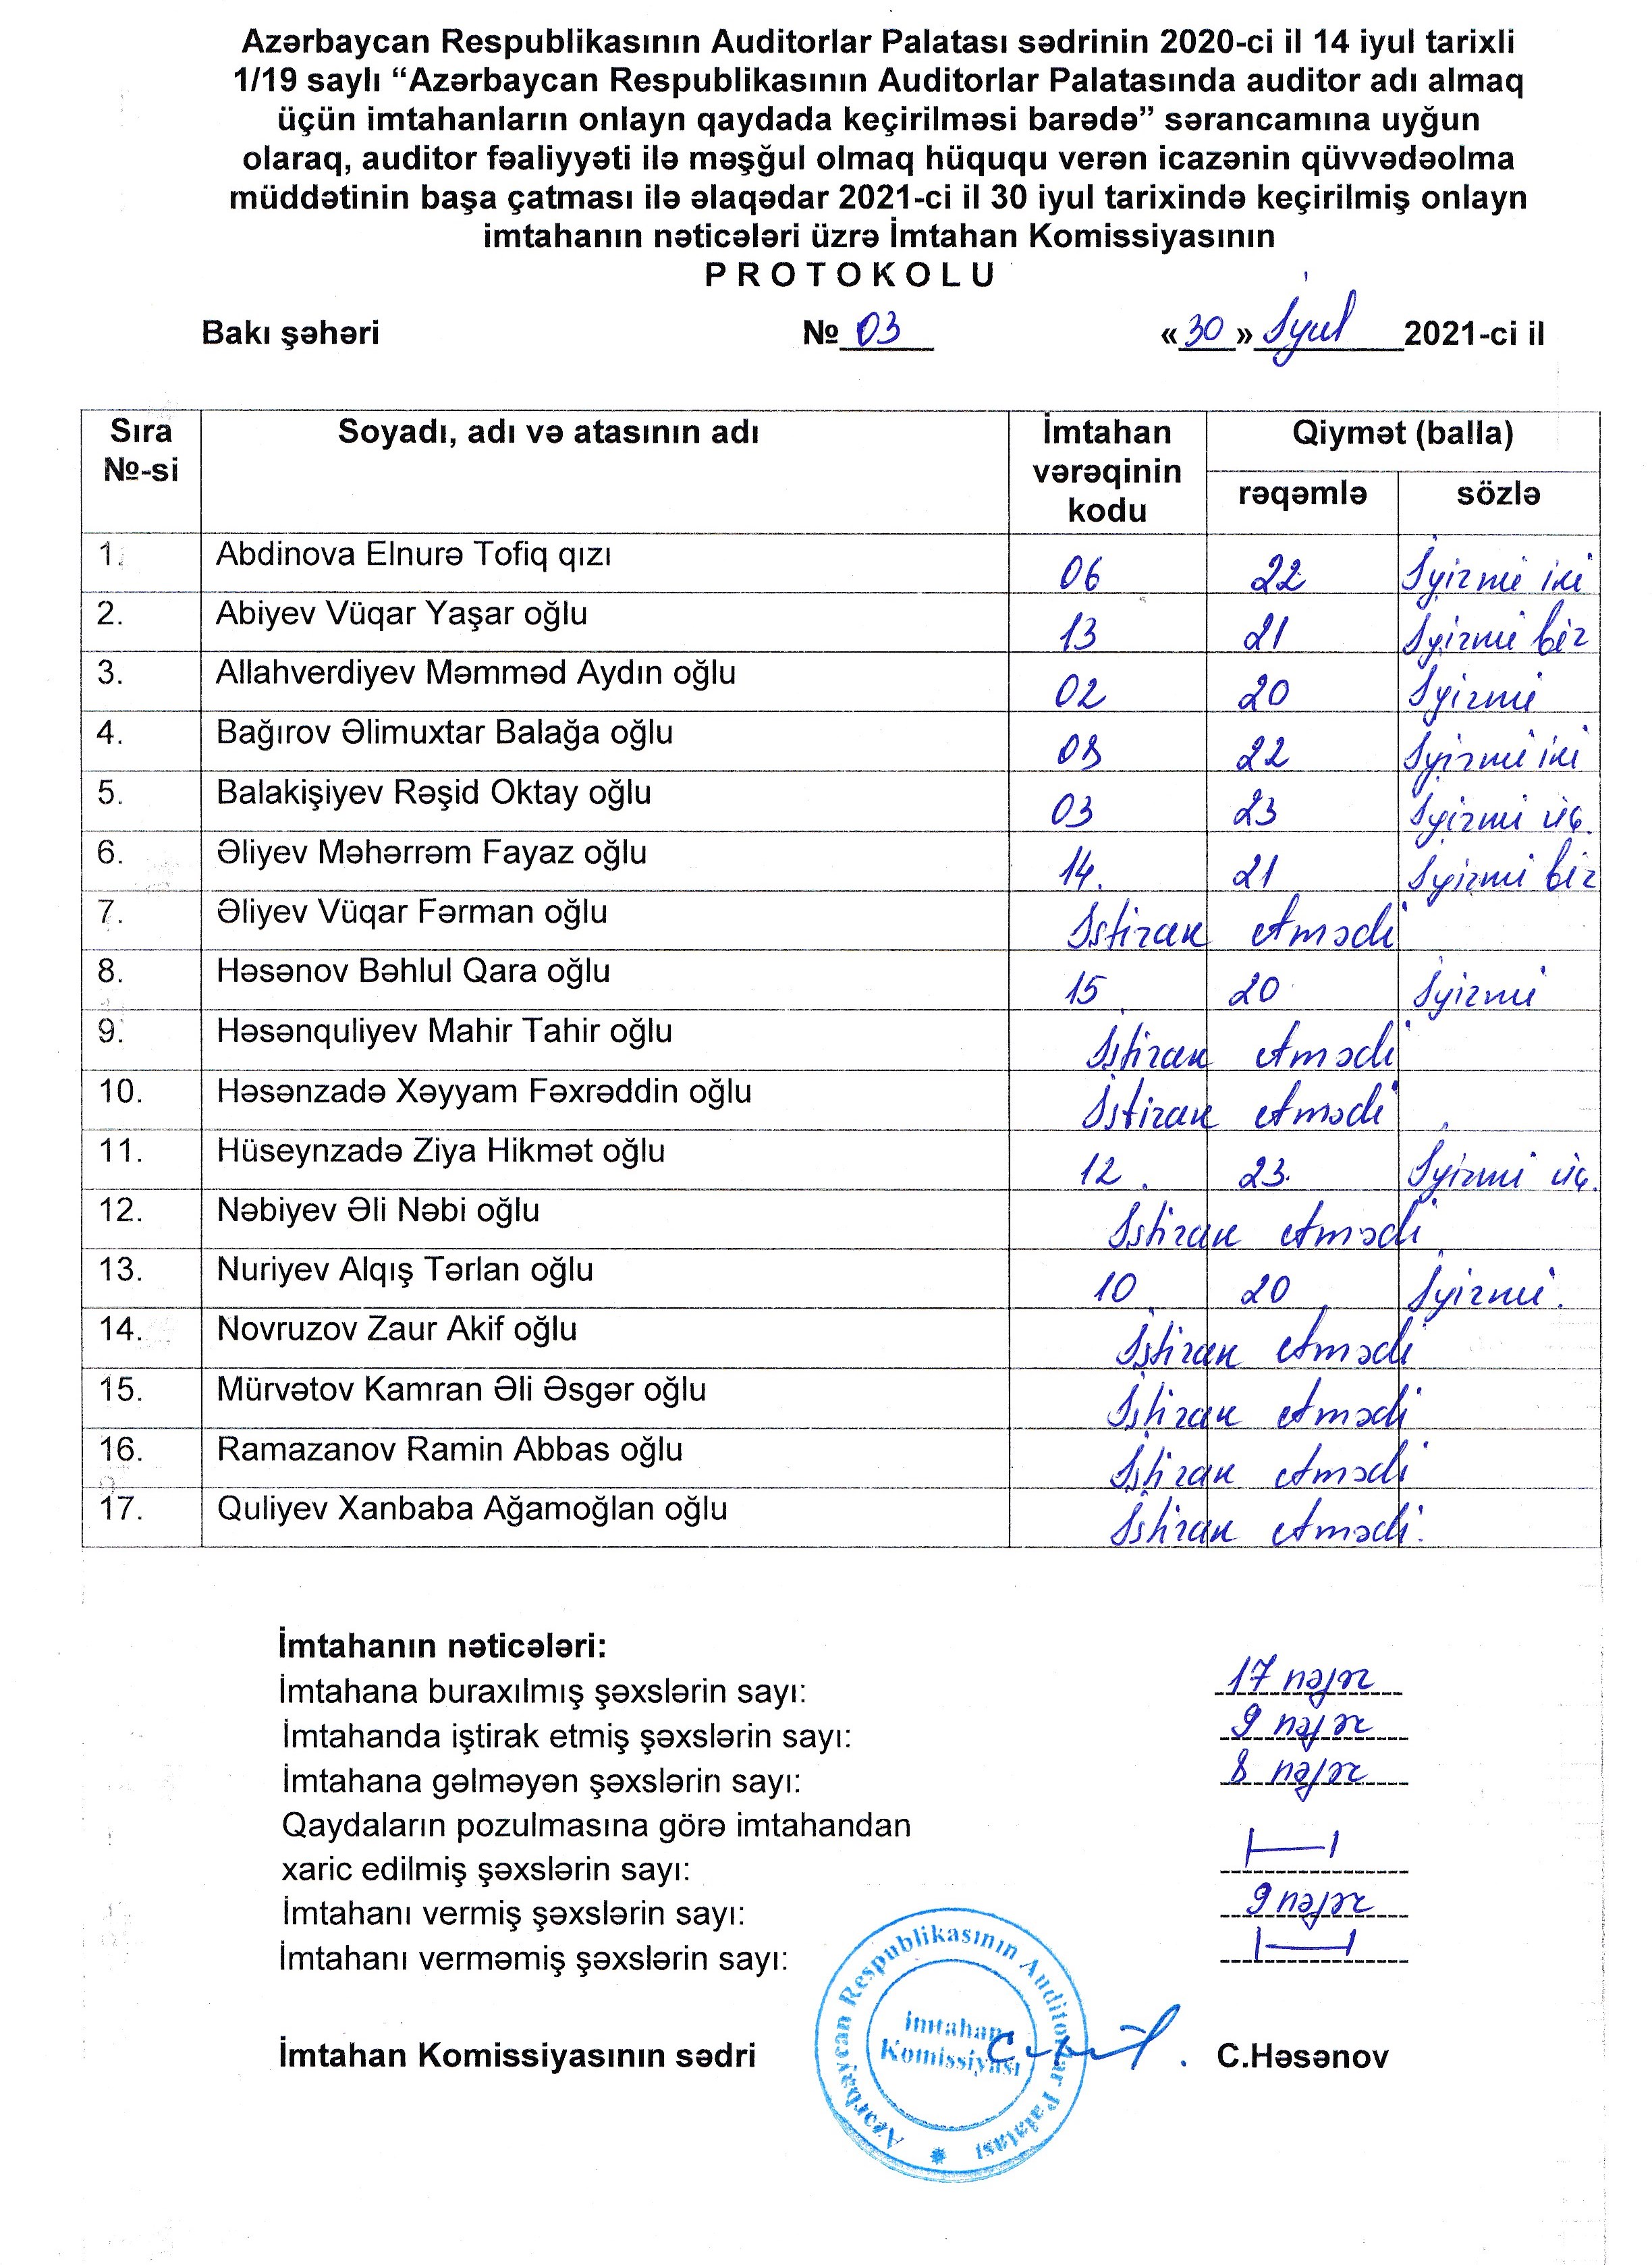 Azərbaycan Respublikasının Auditorlar Palatası sədrinin 2020-ci il 14 iyul tarixli
1/19 saylı “Azərbaycan Respublikasının Auditorlar Palatasında auditor adı almaq
üçün imtahanların onlayn qaydada keçirilməsi barədə” sərancamına uyğun
olaraq, auditor fəaliyyəti ilə məşğul olmaq hüququ verən icazənin qüvvədəolma
müddətinin başa çatması ilə əlaqədar 2021-ci il 30 iyul tarixində keçirilmiş onlayn
imtahanın nəticələri üzrə İmtahan Komissiyasının
P R O T O K O L U
Bakı şəhəri № 03 «30» İyul 2021-ci il
Sıra №-si Soyadı, adı və atasının adı İmtahan vərəqinin kodu Qiymət (balla)
rəqəmlə sözlə
1. Abdinova Elnurə Tofiq qızı 06 22 İyirmi iki
2. Abiyev Vüqar Yaşar oğlu 13 21 İyirmi bir
3. Allahverdiyev Məmməd Aydın oğlu 02 20 İyirmi
4. Bağırov Əlimuxtar Balağa oğlu 08 22 İyirmi iki
5. Balakişiyev Rəşid Oktay oğlu 03 23 İyirmi üç.
6. Əliyev Məhərrəm Fayaz oğlu 14. 21 İyirmi bir
7. Əliyev Vüqar Fərman oğlu İştirak etmədi
8. Həsənov Bəhlul Qara oğlu 15 20 İyirmi
9. Həsənquliyev Mahir Tahir oğlu İştirak etmədi
10. Həsənzadə Xəyyam Fəxrəddin oğlu İştirak etmədi
11. Hüseynzadə Ziya Hikmət oğlu 12. 23. İyirmi üç.
12. Nəbiyev Əli Nəbi oğlu İştirak etmədi
13. Nuriyev Alqış Tərlan oğlu 10 20 İyirmi.
14. Novruzov Zaur Akif oğlu İştirak etmədi
15. Mürvətov Kamran Əli Əsgər oğlu İştirak etmədi
16. Ramazanov Ramin Abbas oğlu İştirak etmədi
17. Quliyev Xanbaba Ağamoğlan oğlu İştirak etmədi.
İmtahanın nəticələri:
İmtahana buraxılmış şəxslərin sayı: 17 nəfər
İmtahanda iştirak etmiş şəxslərin sayı: 9 nəfər
İmtahana gəlməyən şəxslərin sayı: 8 nəfər
Qaydaların pozulmasına görə imtahandan
xaric edilmiş şəxslərin sayı:
İmtahanı vermiş şəxslərin sayı: 9 nəfər
İmtahanı verməmiş şəxslərin sayı:
Azərbaycan Respublikasının Auditorlar Palatası
İmtahan
Komissiyası
İmtahan Komissiyasının sədri C.Həsənov